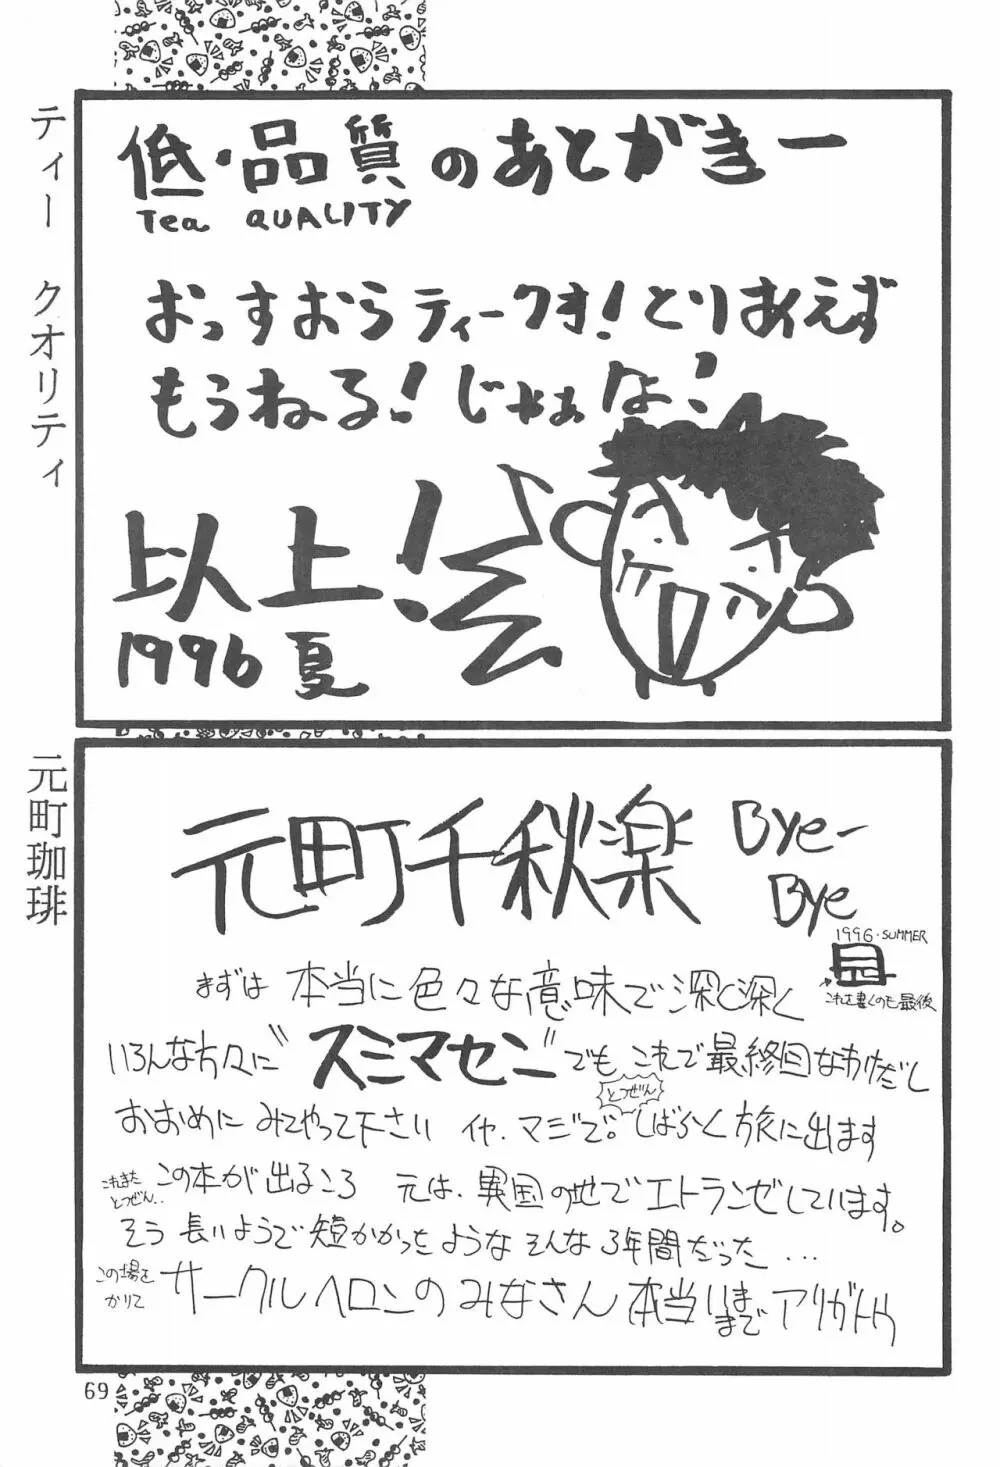 ティー クオリティ
低・品質のあとがきー
Tea QUALITY
おっすおらティークオ!とりあえず
もうねる!じゃあな!
以上!
1996 夏
元町珈琲
元町千秋楽
Bye-
Bye
1996・SUMMER
これを書くのも最後
まずは 本当に色々な意味で深く深く
いろんな方々に"スミマセン"でも これで最終回なわけだし
とつぜん
おおめに みてやって下さい イヤ、マジで。しばらく旅に出ます
これまた
とつぜん..
この本が 出るころ 元は、異国の地でエトランゼしています。
そう 長いようで短かかったような そんな 3年間だった...
この場を
かりて
サークルヘロンのみなさん 本当いままで アリガトウ
69